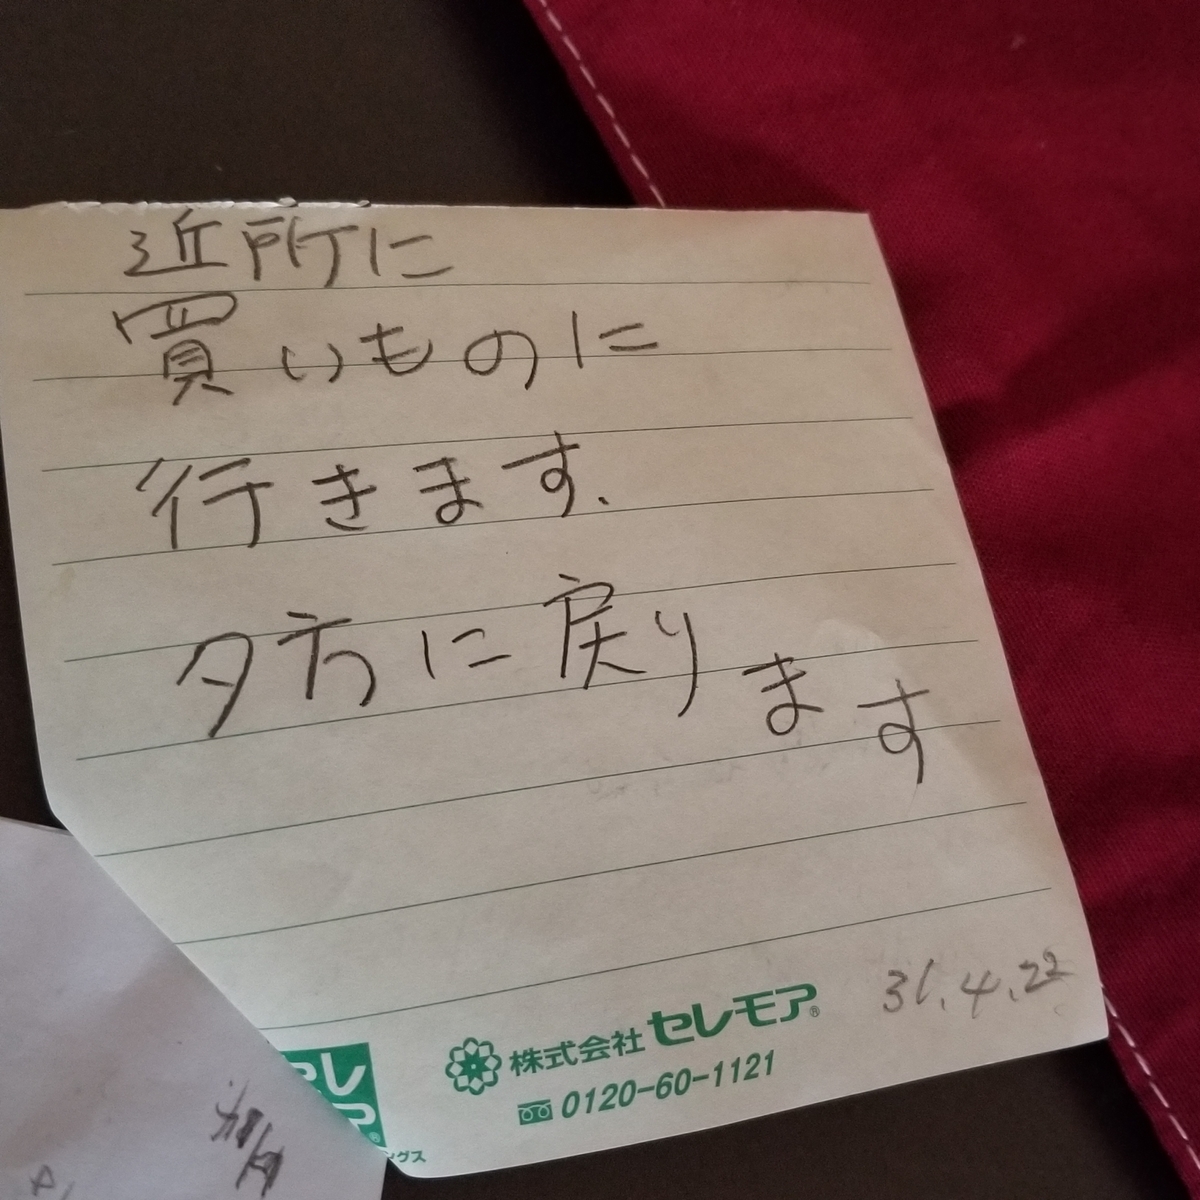 近所に
買いものに
行きます.
夕方に戻ります
31.4.22
株式会社セレモア®
0120-60-1121
セレ
ア®
ングス